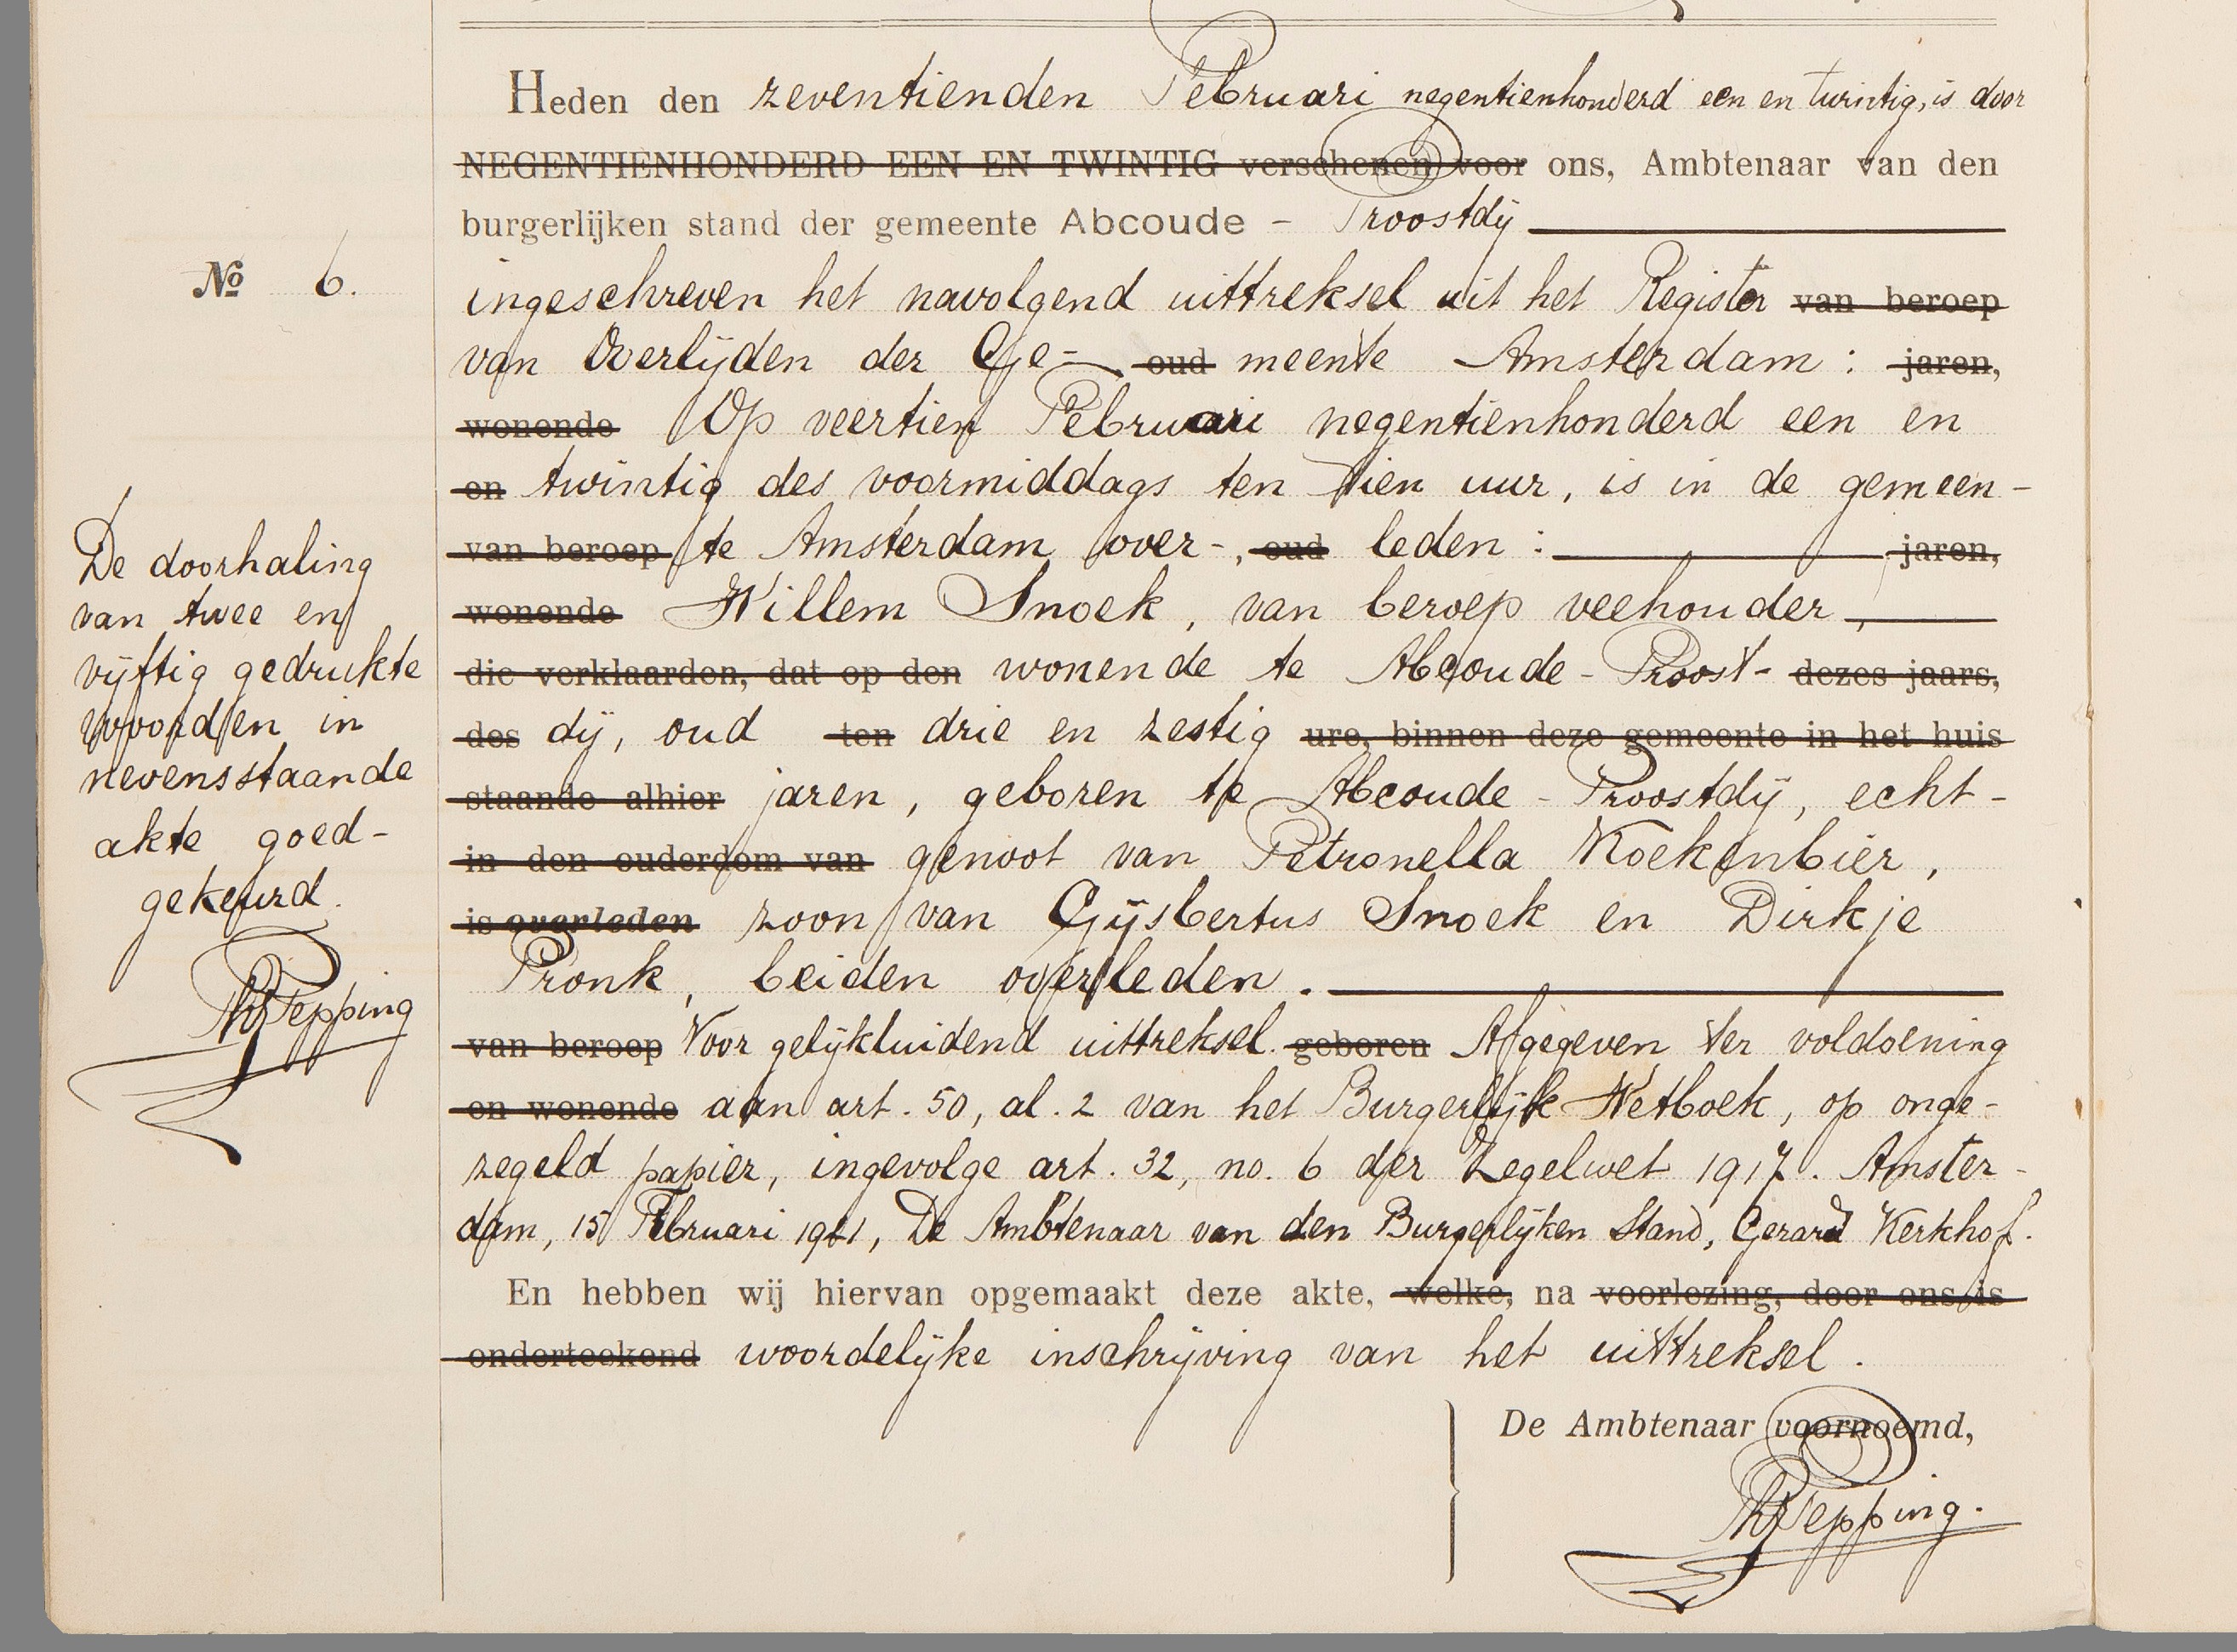 Heden den zeventienden Februari negentienhonderd een en twintig, is door
NEGENTIENHONDERD EEN EN TWINTIG verschenen voor ons, Ambtenaar van den
burgerlijken stand der gemeente Abcoude - Proostdij
No 6.
ingeschreven het navolgend uittreksel uit het Register van beroep
van Overlijden der Ge- oud meente Amsterdam : jaren,
wonende Op veertien Februari negentienhonderd een en
en twintig des voormiddags ten tien uur, is in de gemeen-
van beroep te Amsterdam over-, oud leden : jaren,
wonende Willem Snoek, van beroep veehouder,
die verklaarden, dat op den wonende te Abcoude - Proost- dezes jaars,
des dij, oud ten drie en zestig ure, binnen deze gemeente in het huis
staande alhier jaren, geboren te Abcoude - Proostdij, echt-
in den ouderdom van genoot van Petronella Koekenbier,
is overleden zoon van Gijsbertus Snoek en Dirkje
Pronk, beiden overleden.
van beroep Voor gelijkluidend uittreksel. geboren Afgegeven ter voldoening
en wonende aan art. 50, al. 2 van het Burgerlijk Wetboek, op onge-
zegeld papier, ingevolge art. 32, no. 6 der Zegelwet 1917. Amster-
dam, 15 Februari 1921, De Ambtenaar van den Burgerlijken Stand, Gerard Kerkhof.
En hebben wij hiervan opgemaakt deze akte, welke, na voorlezing, door ons is
onderteekend woordelijke inschrijving van het uittreksel.
De Ambtenaar voornoemd,
Pepping.
De doorhaling
van twee en
vijftig gedrukte
woorden in
nevensstaande
akte goed-
gekeurd.
Pepping